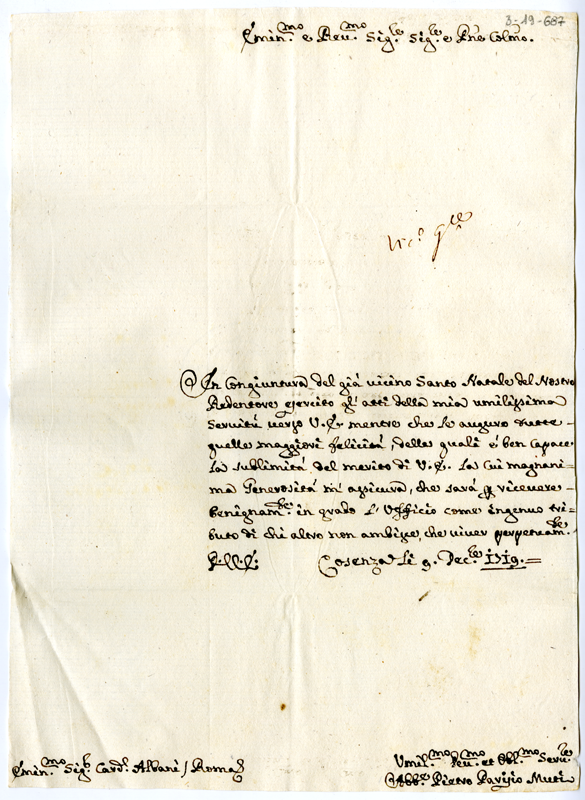 3-19-687
Emin.mo e Rev.mo Sig.re Sig.re e Pne Colmo.
In Congiuntura del già vicino Santo Natale del Nostro
Redentore esercito gl'atti della mia umilissima
Servitù verso V.E. mentre che le auguro tutte
quelle maggiori felicità, delle quali è ben capace
la sublimità del merito di V.E. La cui magnani-
ma Generosità m'assicura, che sarà p ricevere
benignam.te in grado l'Ufficio come ingenuo tri-
buto di chi altro non ambisce, che viver perpetuam.te
Cosenza li 9. Dec.re 1719.
Emin.mo Sig.r Card. Albani / Roma
Umil.mo Dev.mo et Obl.mo Serv.re
Abb.e Pietro Muti